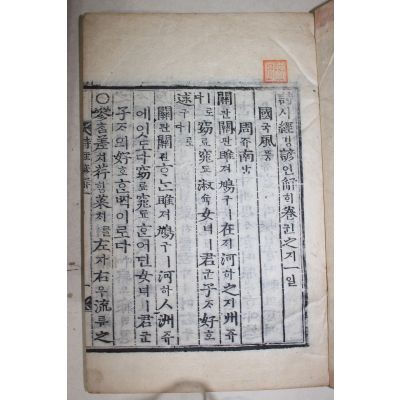 詩시經경諺언解ᄒᆡ卷권之지一일
國국風풍
周쥬南남
關관關관雎져鳩구ㅣ在ᄌᆡ河하之지洲쥬
ㅣ로다窈요窕됴淑슉女녀ㅣ君군子ᄌᆞ好호
逑구ㅣ로다
關관關관ᄒᆞᄂᆞᆫ雎져鳩구ㅣ河하ㅅ洲쥬
에잇도다窈요窕됴ᄒᆞᆫ어딘女녀ㅣ君군
子ᄌᆞ의好호ᄒᆞᆫᄧᅡᆨ이로다
○參差치荇ᄒᆡᆼ菜ᄎᆡᄅᆞᆯ左자右우流류之